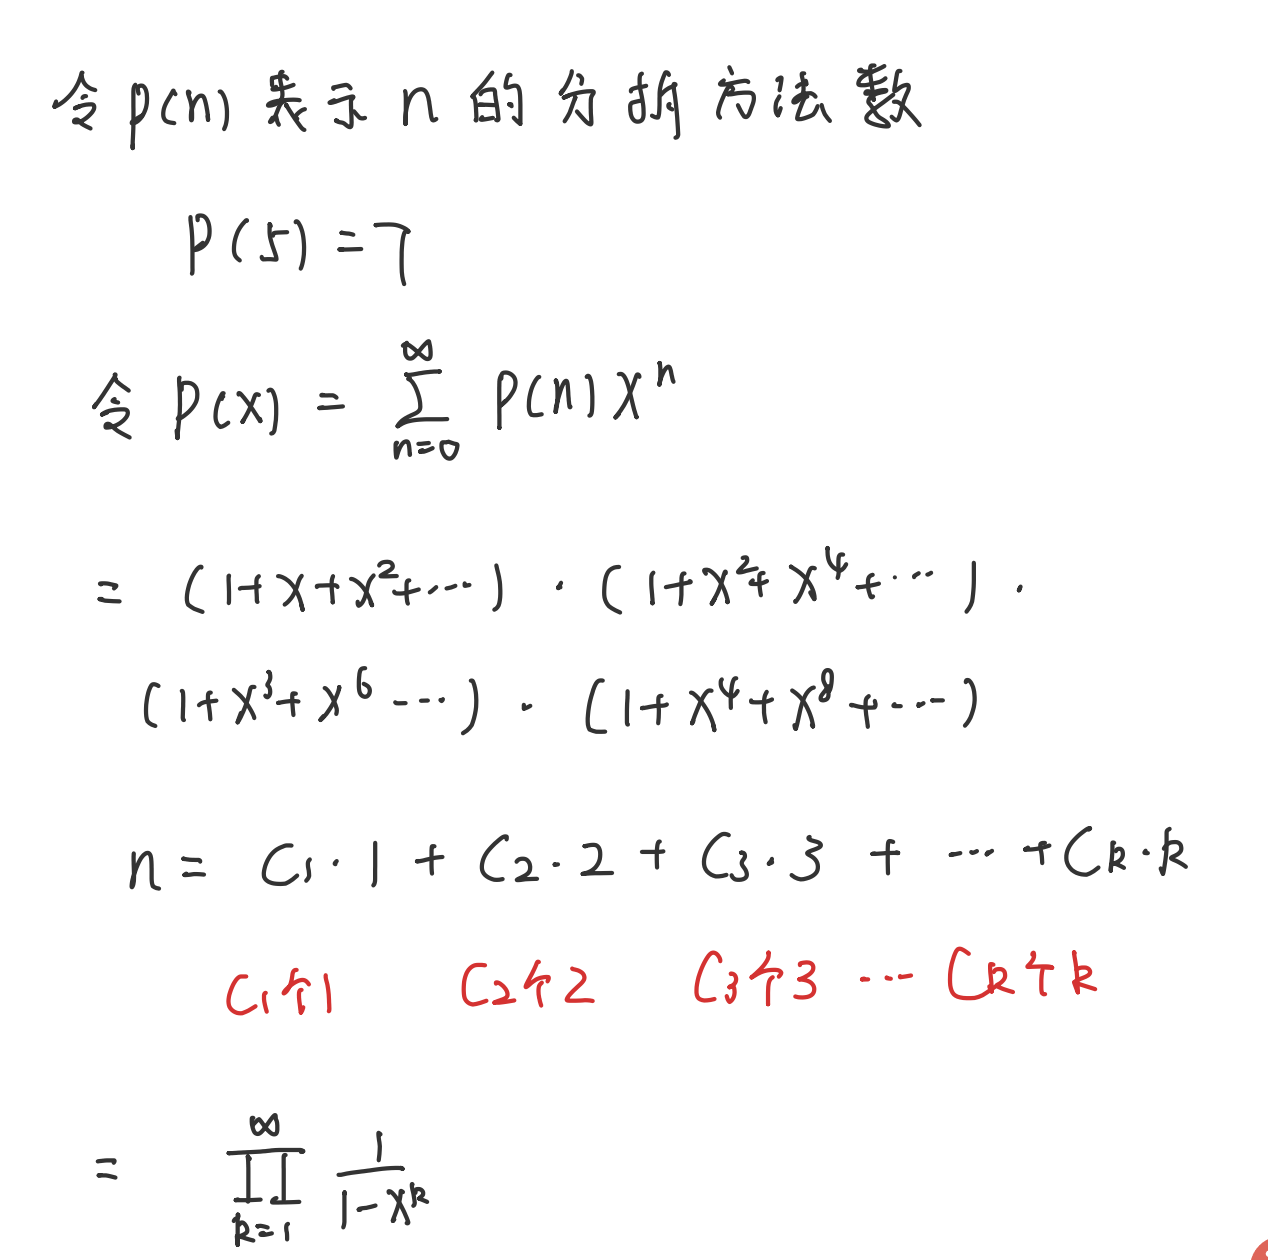 令 p(n) 表示 n 的分拆方法数
P(5) = 7
令 P(x) = ∑_{n=0}^{∞} P(n) x^n
= (1+x+x²+⋯) · (1+x²+x⁴+⋯) ·
(1+x³+x⁶⋯) · (1+x⁴+x⁸+⋯)
n = C₁·1 + C₂·2 + C₃·3 + ⋯ + Cₖ·k
C₁个1 C₂个2 C₃个3 ⋯ Cₖ个k
= ∏_{k=1}^{∞} 1/(1-x^k)